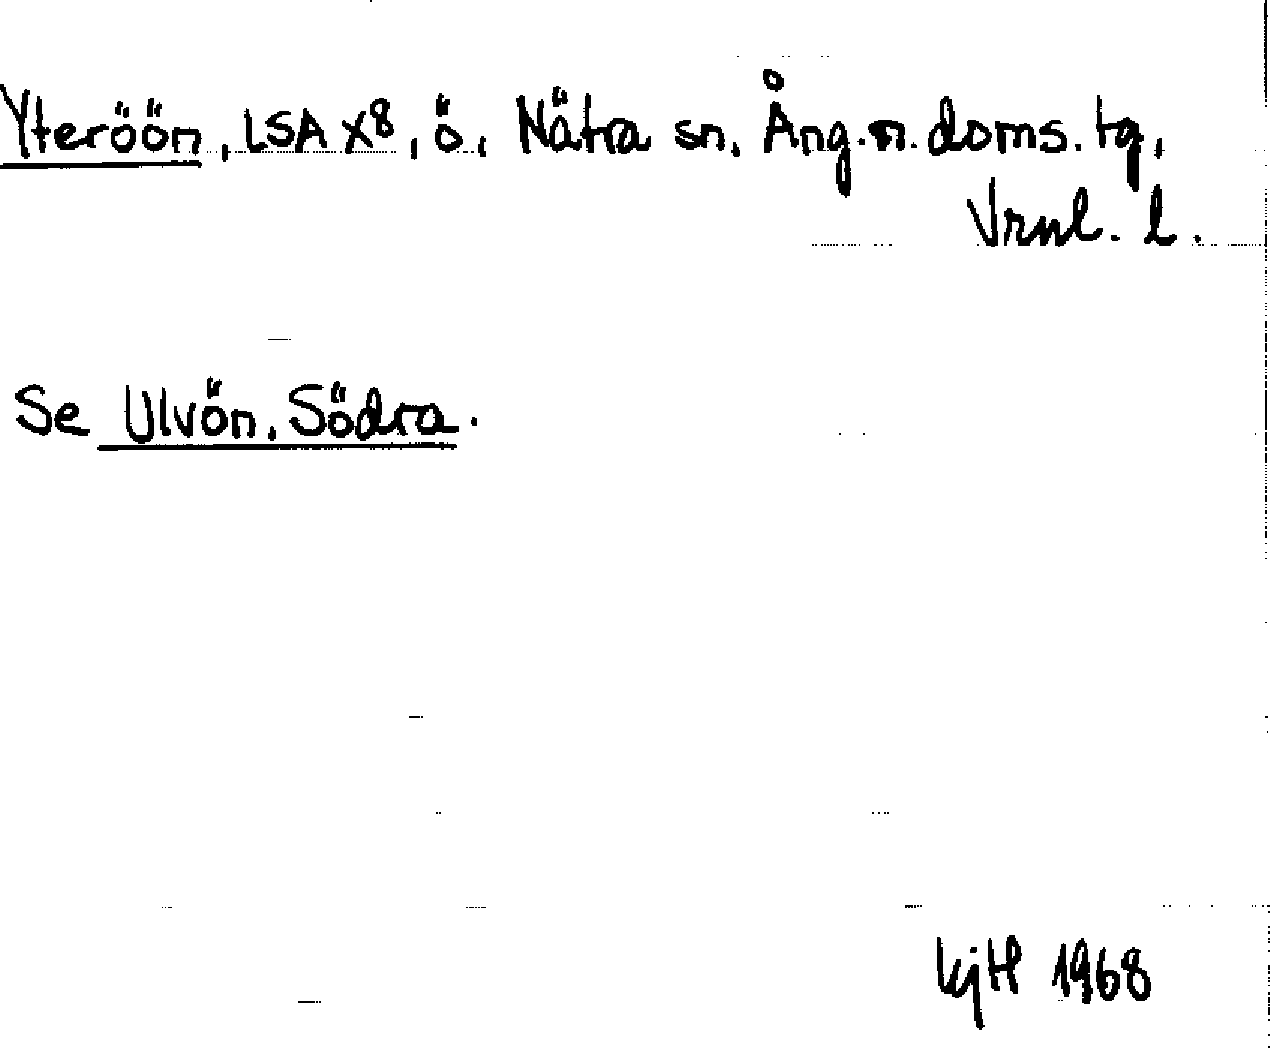 Yteröön, LSA X8, ö., Nätra sn, Ång. n. doms. tg,
Vrnl. l.
Se Ulvön, Södra.
KjH 1968